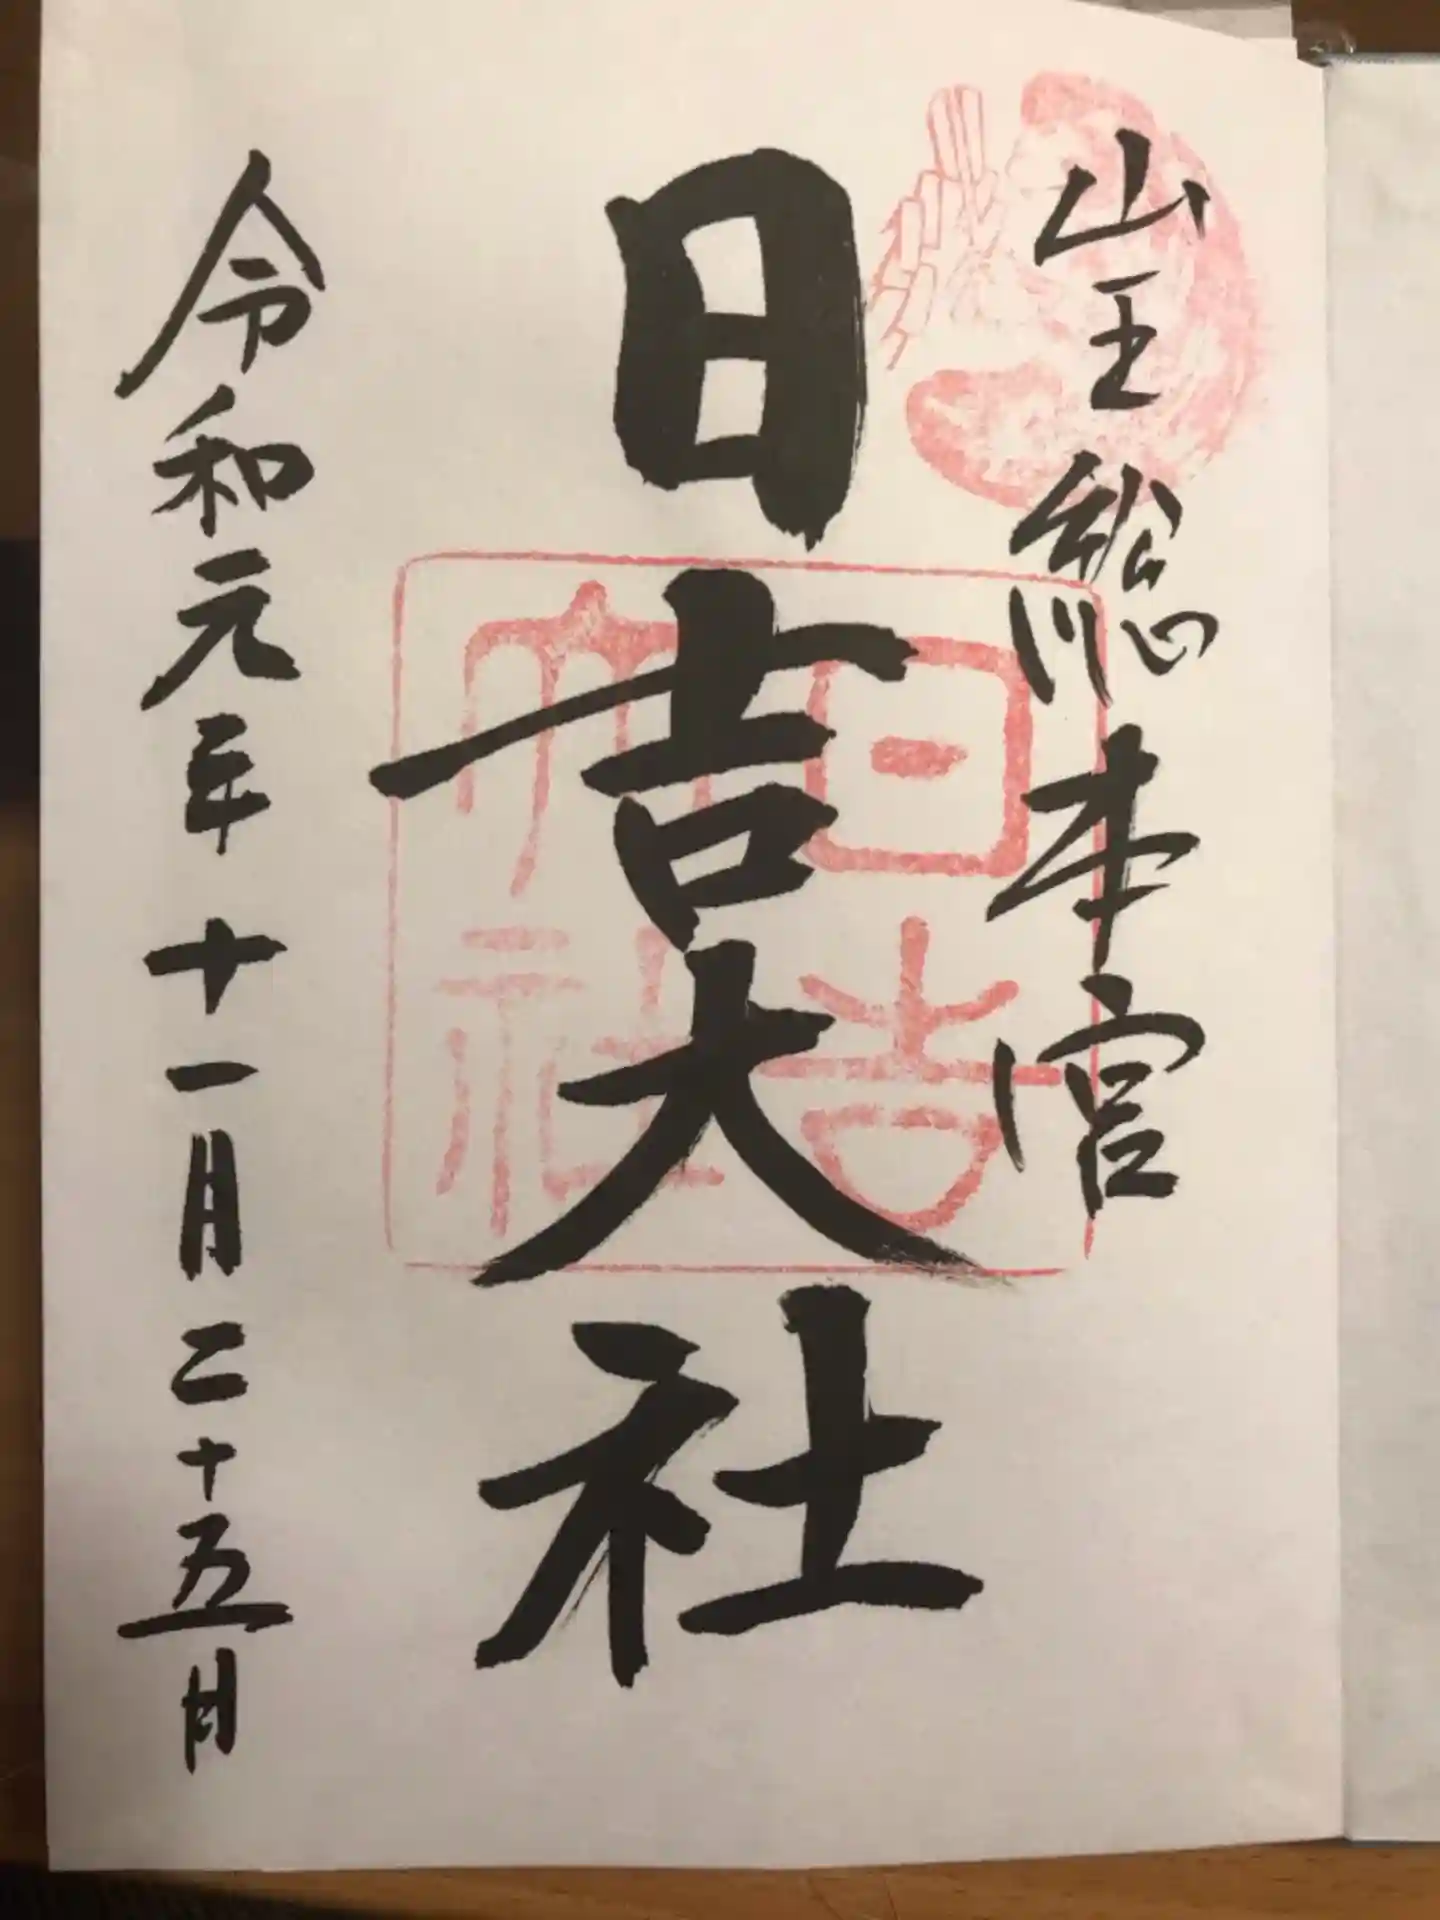 山王総本宮
日吉大社
日吉
大社
令和元年十一月二十五日